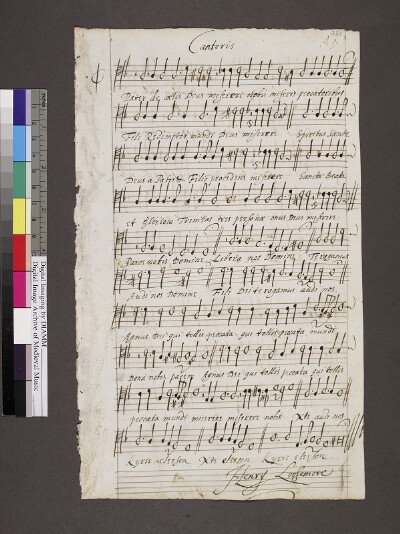 Cantoris
Pater de cœlis Deus miserere nobis miseris peccatoribus
Fili Redemptor mundi Deus miserere Spiritus Sancte
Deus a Patre & Filio procedens miserere Sancta beata
et Gloriosa Trinitas tres personæ unus Deus miserere
Parce nobis Domine Libera nos Domine Te rogamus
Audi nos Domine Fili Dei te rogamus audi nos
Agnus Dei qui tollis peccata qui tollis peccata mundi
Dona nobis pacem Agnus Dei qui tollis peccata qui tollis
peccata mundi miserere miserere nobis Xte audi nos
Kyrie eleyson Xte eleyson Kyrie eleyson
Henry Loosemore
Digital Imaging by DIAMM
Digital Image Archive of Medieval Music